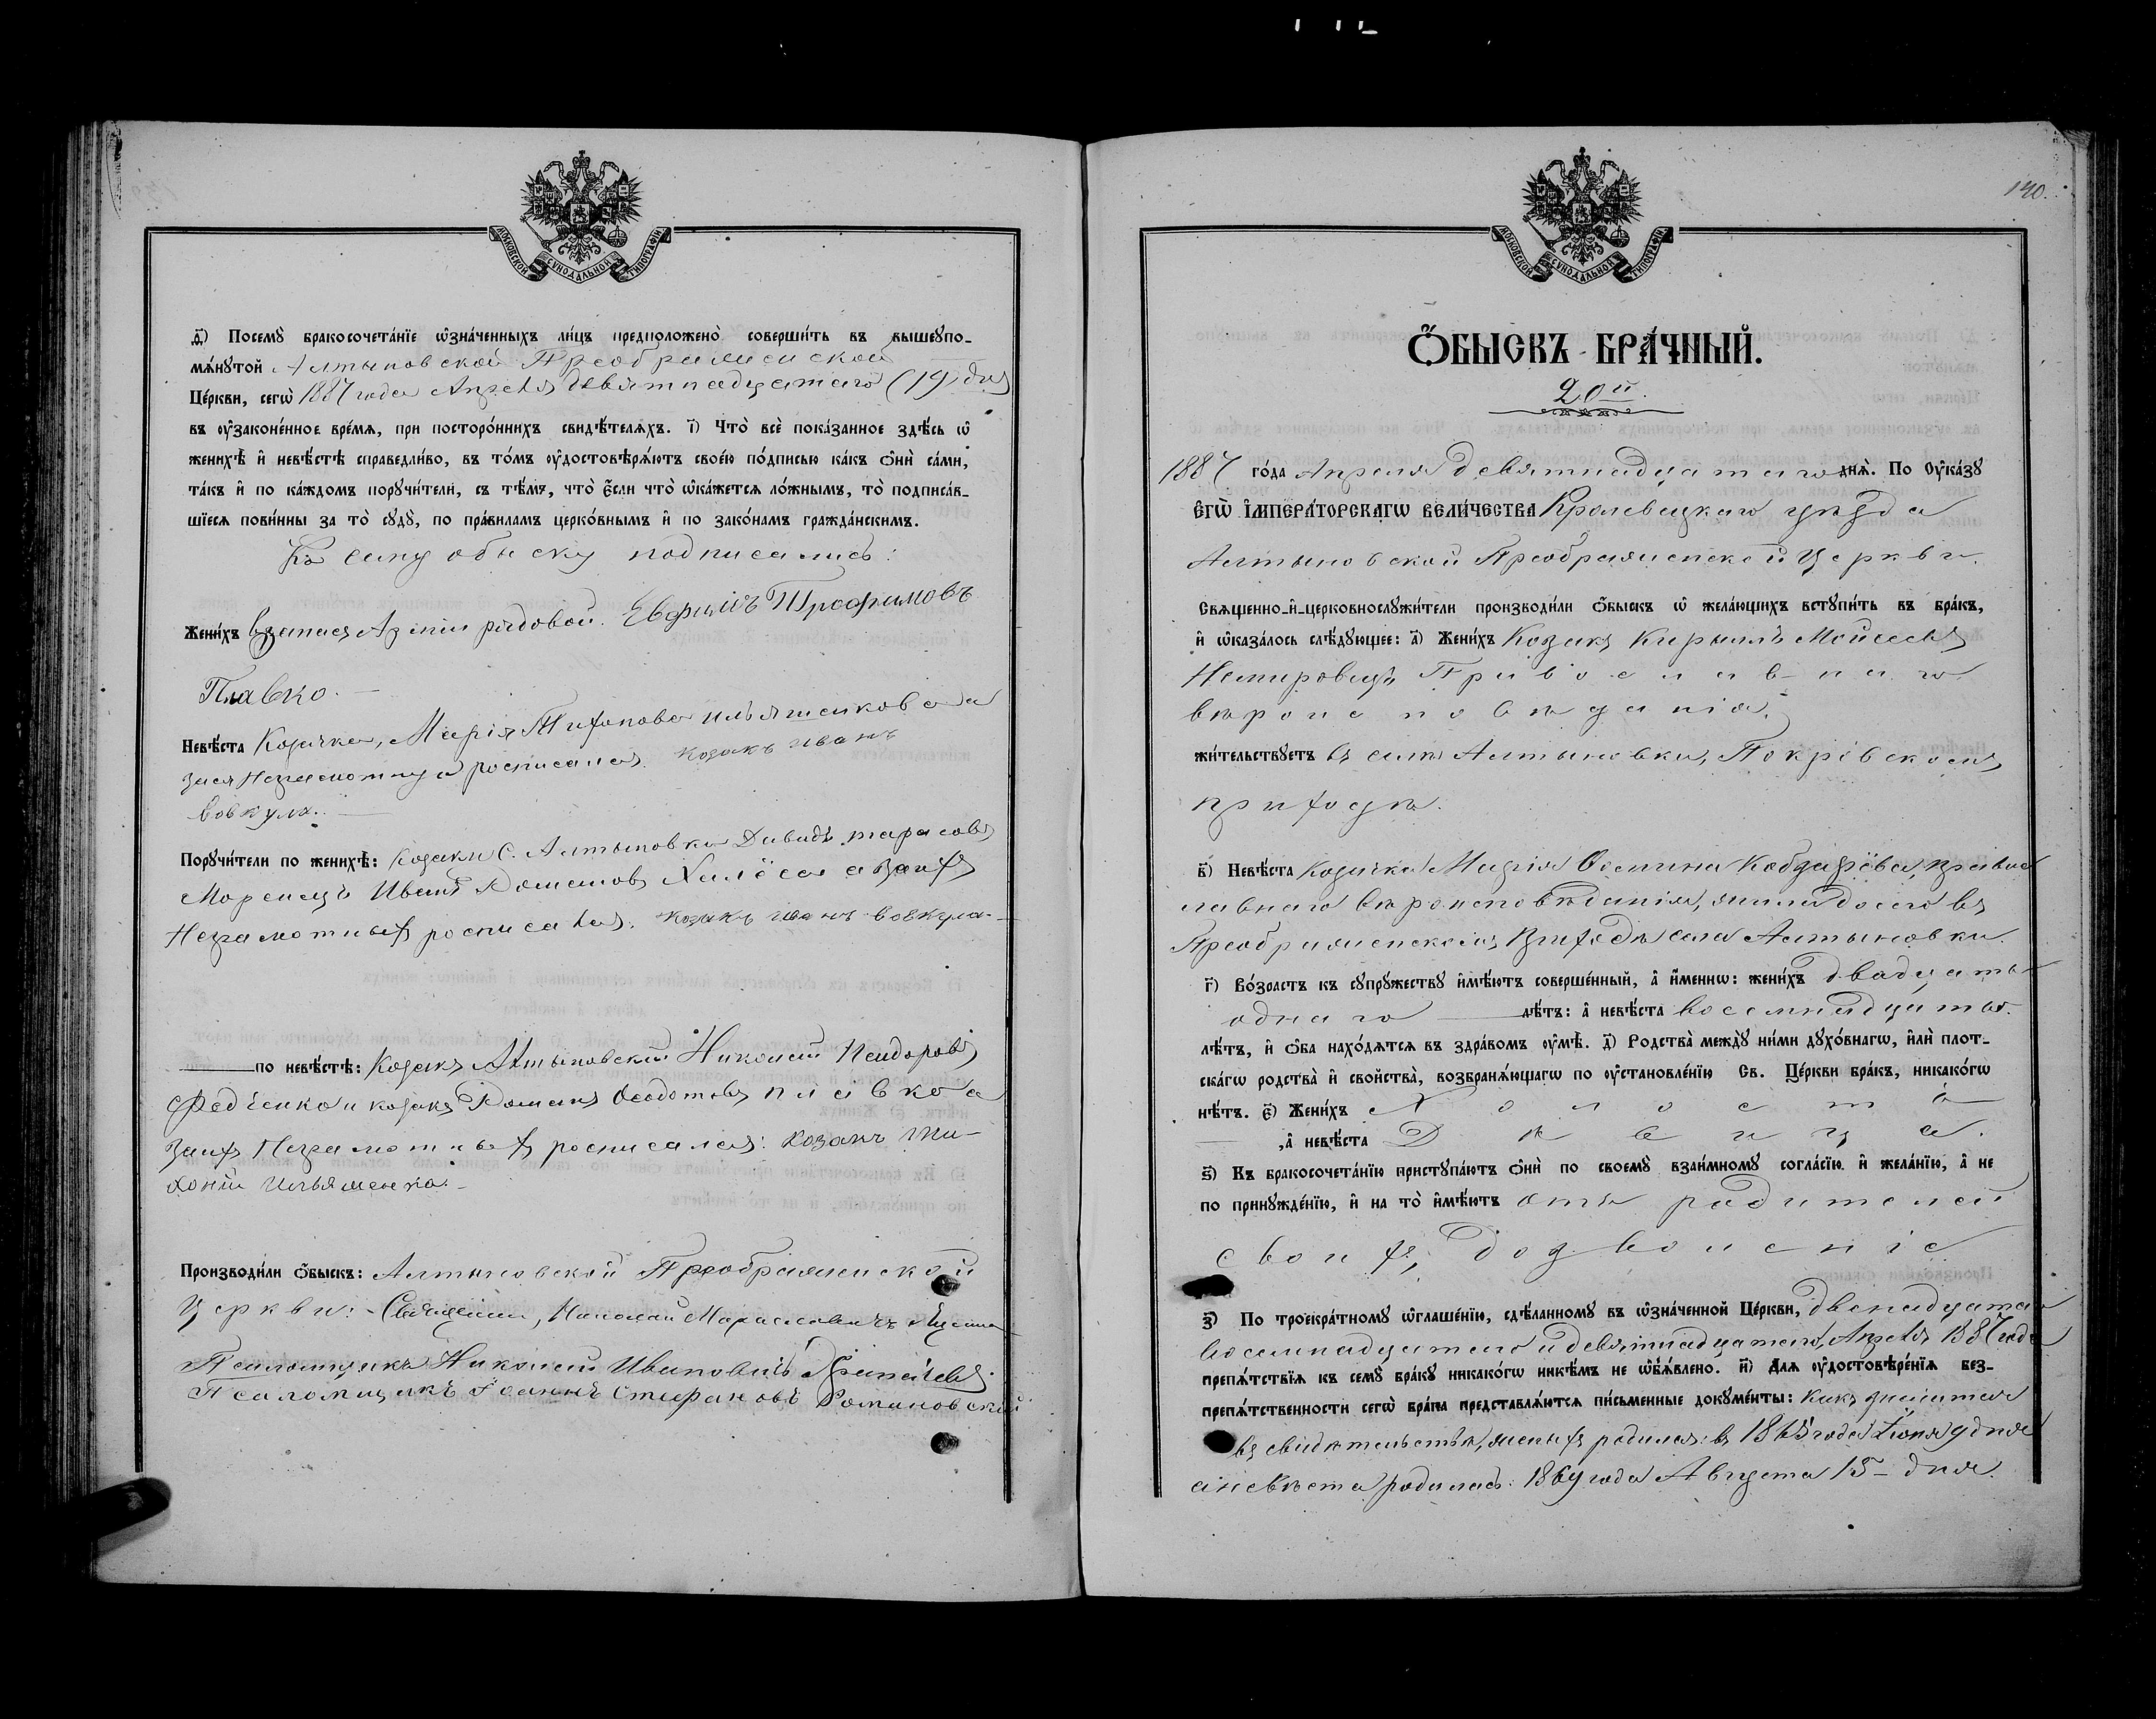 МОСКОВСКОЙ СУНОДАЛЬНОЙ ТИПОГРАФІИ
д҃) Посемꙋ̀ бракосочета́нїе ѡ҆зна́ченныхъ ли́цъ предположено̀ соверши́ть въ вышеꙋпо-
мѧ́нꙋтой Алтыновской Преображенской
Це́ркви, сегѡ̀ 1887 года Апреля девятнадцатаго (19) дня
въ ᲂу҆законе́нное вре́мѧ, при посторо́ннихъ свидѣ́телѧхъ. і҃) Что̀ всѐ пока́занное здѣ́сь ѡ҆
женихѣ̀ и҆ невѣ́стѣ справедли́во, въ то́мъ ᲂу҆достовѣрѧ́ютъ свое́ю по́дписью ка́къ ѻ҆нѝ са́ми,
та́къ и҆ по ка́ждомъ порꙋчи́тели, съ тѣ́мъ, что̀ є҆́сли что̀ ѡ҆ка́жетсѧ ло́жнымъ, то̀ подписа́в-
шїесѧ пови́нны за то̀ сꙋдꙋ̀, по пра́виламъ церко́внымъ и҆ по зако́намъ гражда́нскимъ.
Къ сему обыску подписались:
Жени́хъ взапасѣ Арміи рядовой. Евфимій Трофимовъ
Плавко.
Невѣ́ста Козачка, Марія Тихонова Ильяшенкова а
занея Неграмотную росписался козакъ иванъ
вовкула.
Порꙋчи́тели по женихѣ̀: Козаки С. Алтыновки Давидъ тарасовъ
Моренецъ Иванъ Романовъ а заихъ
Неграмотныхъ росписался. козакъ иванъ вовкула
по невѣ́стѣ: Козакъ Алтыновский Николай Исидоровъ
Федченко и козакъ Романъ Ѳеодотовъ плавко а
заихъ Неграмотныхъ росписался: козакъ ти-
хонъ ильяшенко.
Производи́ли ѻ҆́быскъ: Алтыновской Преображенской
Церкви: Священник, Николай
Псаломщикъ Николай Ивановичъ
Псаломщикъ Іоаннъ Стефановъ Романовский
140.
МОСКОВСКОЙ СУНОДАЛЬНОЙ ТИПОГРАФІИ
Ѻ҆БЫСКЪ БРА́ЧНЫЙ.
20й.
1887 го́да Апреля девятнадцатаго днѧ̀. По Оу҆ка́зꙋ
Є҆ГѠ̀ І҆МПЕРА́ТОРСКАГѠ ВЕЛИ́ЧЕСТВА Кролевецкаго уѣзда
Алтыновской Преображенской Церкви.
Свѧщенно-и҆-церковнослꙋжи́тели производи́ли ѻ҆́быскъ ѡ҆ жела́ющихъ встꙋпи́ть въ бра́къ,
и҆ ѡ҆каза́лось слѣ́дꙋющее: а҃) Жени́хъ Козакъ Кирыллъ Мойсеевъ
Немировецъ Православнаго
вѣроисповѣданія.
жи́тельствꙋетъ въ селѣ Алтыновки, Покровскомъ
приходѣ.
в҃) Невѣ́ста Козачка Марія Ѳомина Кобзарева, право
славнаго вѣроисповѣданія, жила досего въ
Преображенскомъ Приходѣ села Алтыновки.
г҃) Во́зрастъ къ сꙋпрꙋ́жествꙋ и҆мѣ́ютъ соверше́нный, а҆ и҆́меннѡ: жени́хъ двадцать
однаго лѣ́тъ: а҆ невѣ́ста восемнадцать.
лѣ́тъ, и҆ ѻ҆́ба нахо́дѧтсѧ въ здра́вомъ ᲂу҆мѣ̀. д҃) Родства̀ междꙋ̀ ни́ми дꙋхо́внагѡ, и҆лѝ плот-
ска́гѡ родства̀ и҆ свойства̀, возбранѧ́ющагѡ по ᲂу҆становле́нїю Св. Це́ркви бра́къ, никако́гѡ
нѣ́тъ. є҃) Жени́хъ Холостъ
, а҆ невѣ́ста Дѣвица.
ѕ҃) Къ бракосочета́нїю пристꙋпа́ютъ ѻ҆нѝ по своемꙋ̀ взаи́мномꙋ согла́сїю и҆ жела́нїю, а҆ не
по принꙋжде́нїю, и҆ на то̀ и҆мѣ́ютъ отъ родителей
своихъ, дозволеніе
з҃) По троекра́тномꙋ ѡ҆глаше́нїю, сдѣ́ланномꙋ въ ѡ҆зна́ченной Це́ркви, двенадцатаго
восемнадцатаго и девятнадцатаго, Апреля 1887 года
препѧ́тствїѧ къ семꙋ̀ бра́кꙋ никако́гѡ никѣ́мъ не ѡ҆б̾ѧ́влено. и҃) Длѧ ᲂу҆достовѣре́нїѧ без-
препѧ́тственности сегѡ̀ бра́ка представлѧ́ютсѧ пи́сьменные докꙋме́нты: какъ значится
въ свидѣтельствѣ, женихъ родился: въ 1865 года Іюня 9 дня
а невѣста родилась: 1869 года Августа 15 - дня.